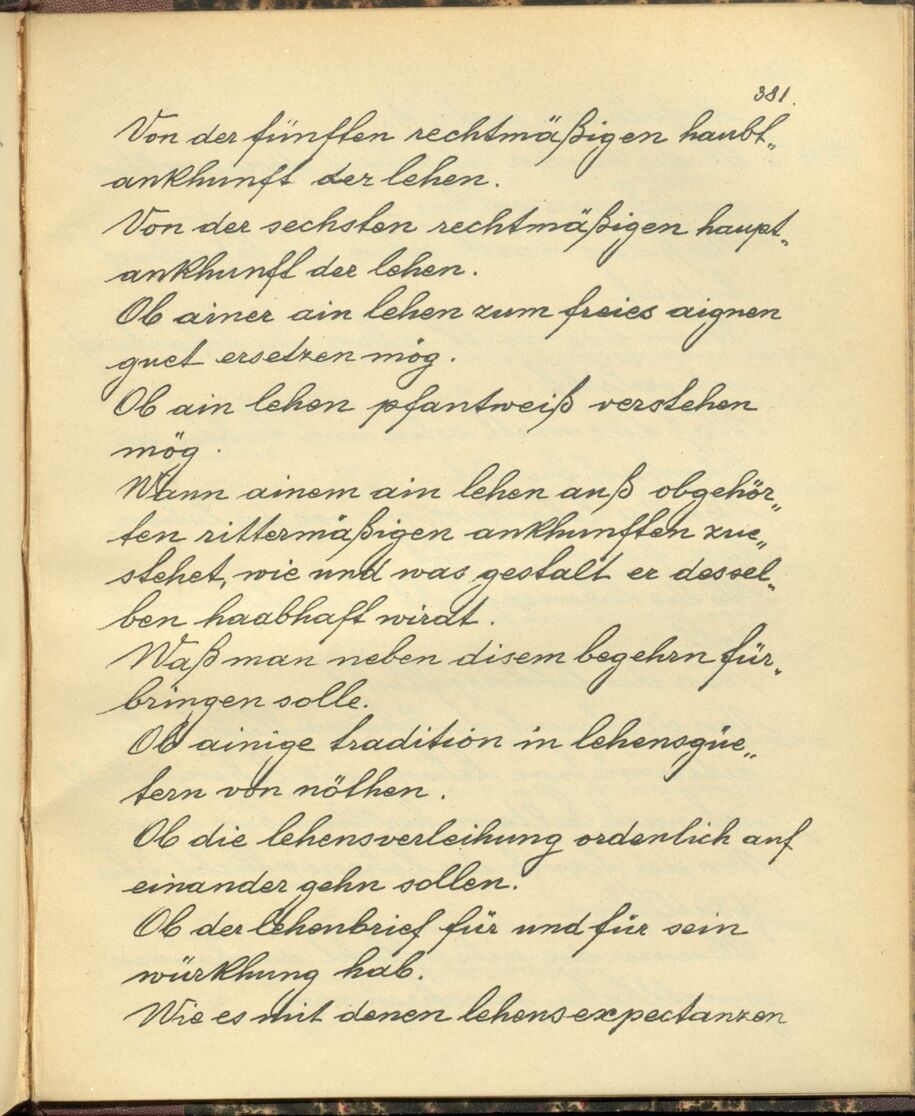 381.
Von der fünfften rechtmäßigen haubt„
ankhunft der lehen.
Von der sechsten rechtmäßigen haupt„
ankhunft der lehen.
Ob ainer ain lehen zum freies aignen
guet ersetzen mög.
Ob ain lehen pfantweiß verstehen
mög.
Wann ainem ain lehen auß obgehör„
ten rittermäßigen ankhunften zue„
stehet, wie und was gestalt er dessel„
ben haabhaft wirdt.
Waß man neben disem begehrn für„
bringen solle.
Ob ainige tradition in lehensgüe„
tern von nöthen.
Ob die lehensverleihung ordenlich auf
einander gehn sollen.
Ob der lehenbrief für und für sein
würkhung hab.
Wie es mit denen lehensexpectanzen